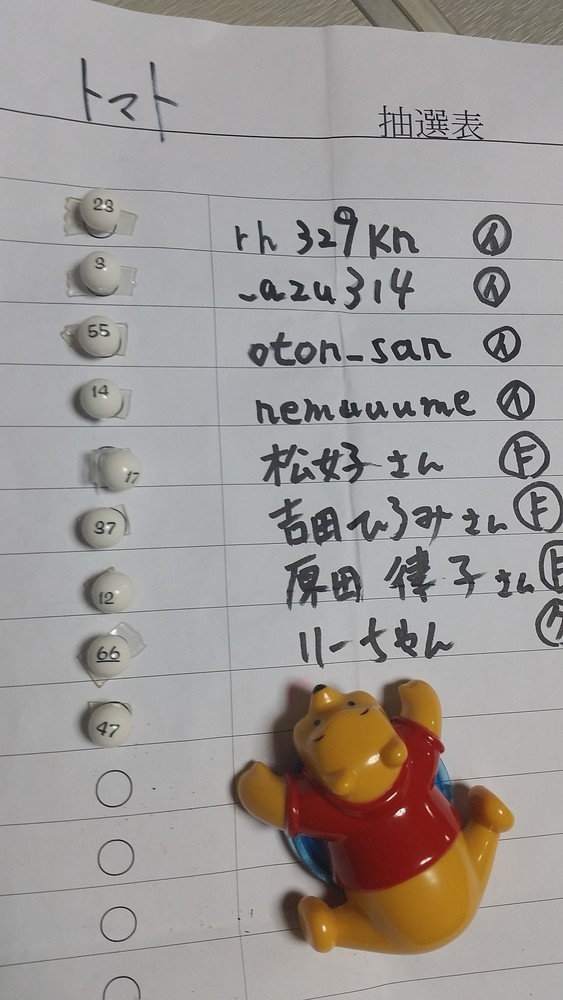 トマト
抽選表
23 rh329kn イ
9 _azu314 イ
55 oton_san イ
14 nemuuume イ
17 松好さん F
37 吉田ひろみさん F
12 原田律子さん F
66 りーちゃん
47